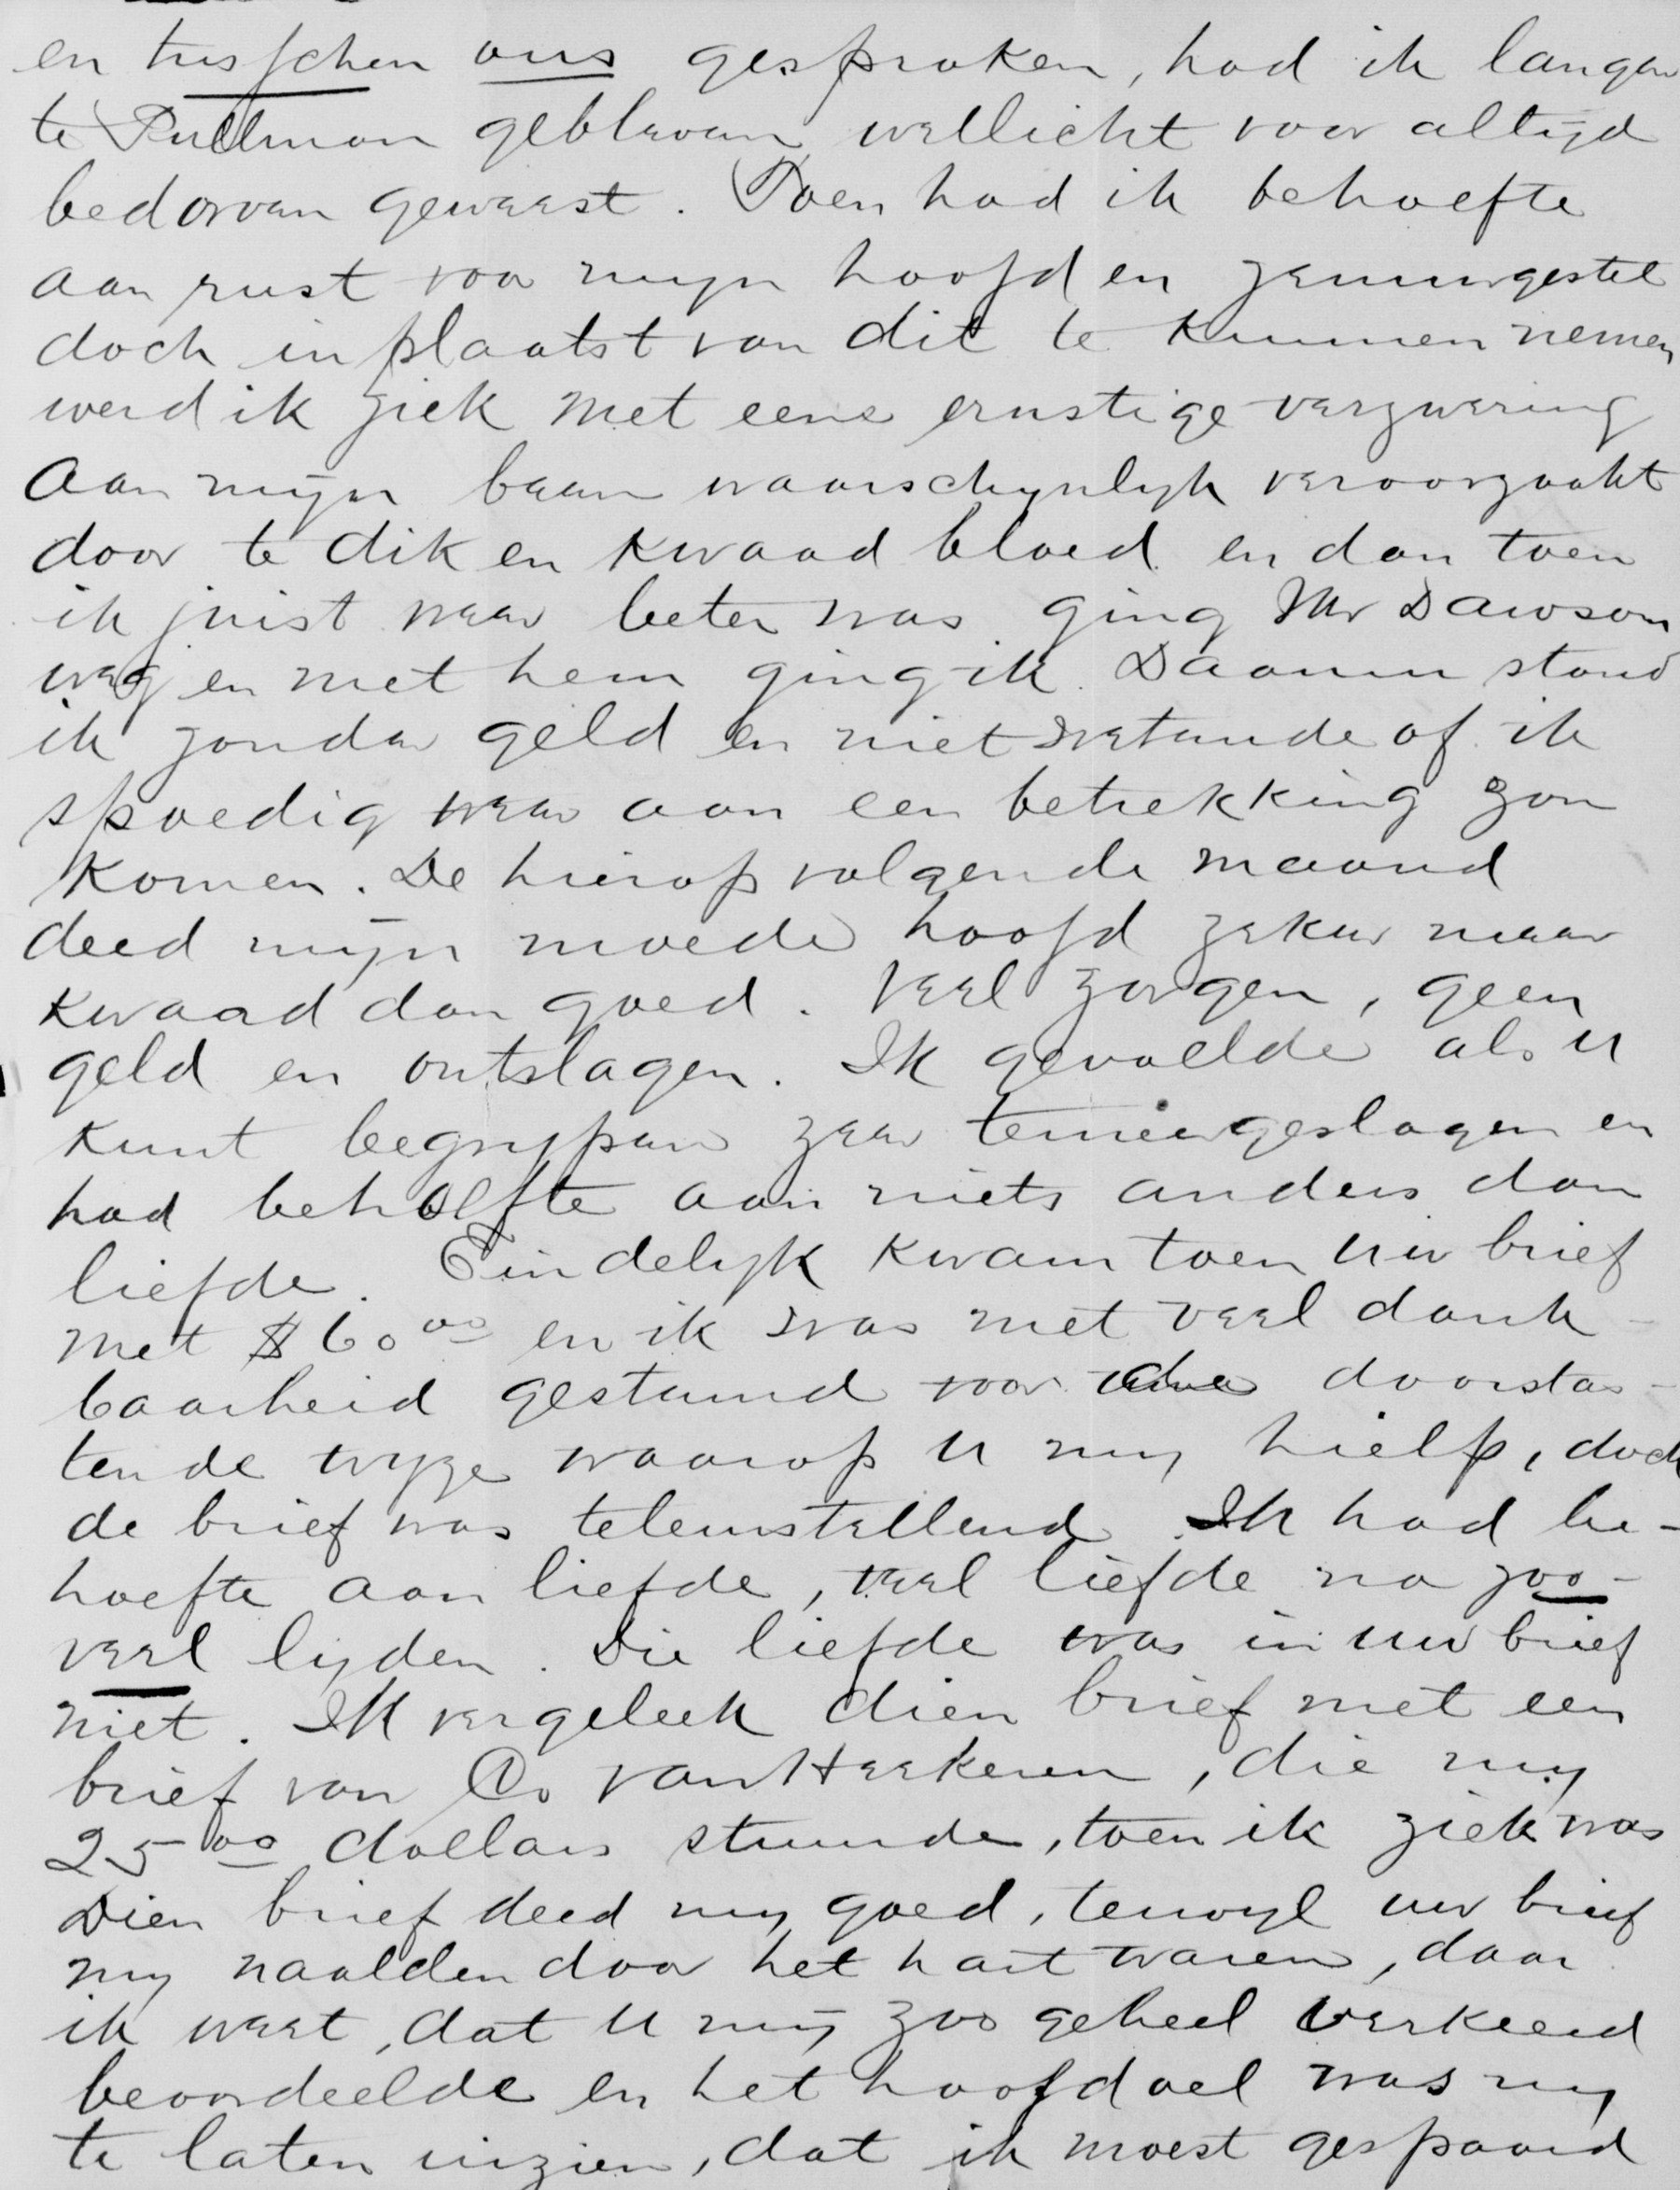 en tusschen ons gesproken, had ik langer
te Pullman gebleven wellicht voor altijd
bedorven geweest. Toen had ik behoefte
aan rust voor mijn hoofd en zenuwgestel
doch in plaatst van dit te kunnen nemen
werd ik ziek met eene ernstige verzwering
aan mijn been waarschynlyk veroorzaakt
door te dik en kwaad bloed en dan toen
ik juist weer beter was ging Mr Dawson
weg en met hem ging ik. Daarom stond
ik zonder geld en niet wetende of ik
spoedig weer aan een betrekking zou
komen. De hierop volgende maand
deed mijn moede hoofd zeker meer
kwaad dan goed. Veel zorgen, geen
geld en ontslagen. Ik gevoelde als U
kunt begrypen zeer terneergeslagen en
had behoefte aan niets anders dan
liefde. Eindelyk kwam toen Uw brief
met $60 00 en ik was met veel dank-
baarheid gestemd voor de doortas-
tende wyze waarop U my hielp, doch
de brief was teleurstellend. Ik had be-
hoefte aan liefde, veel liefde na zoo-
veel lyden. Die liefde was in uw brief
niet. Ik vergeleek dien brief met een
brief van Co van Heekeren, die my
25 00 dollars stuurde, toen ik ziek was
Dien brief deed my goed, terwyl uw brief
my naalden door het hart waren, daar
ik weet, dat U mij zoo geheel verkeerd
beoordeelde en het hoofdoel was my
te laten inzien, dat ik moest gespaard